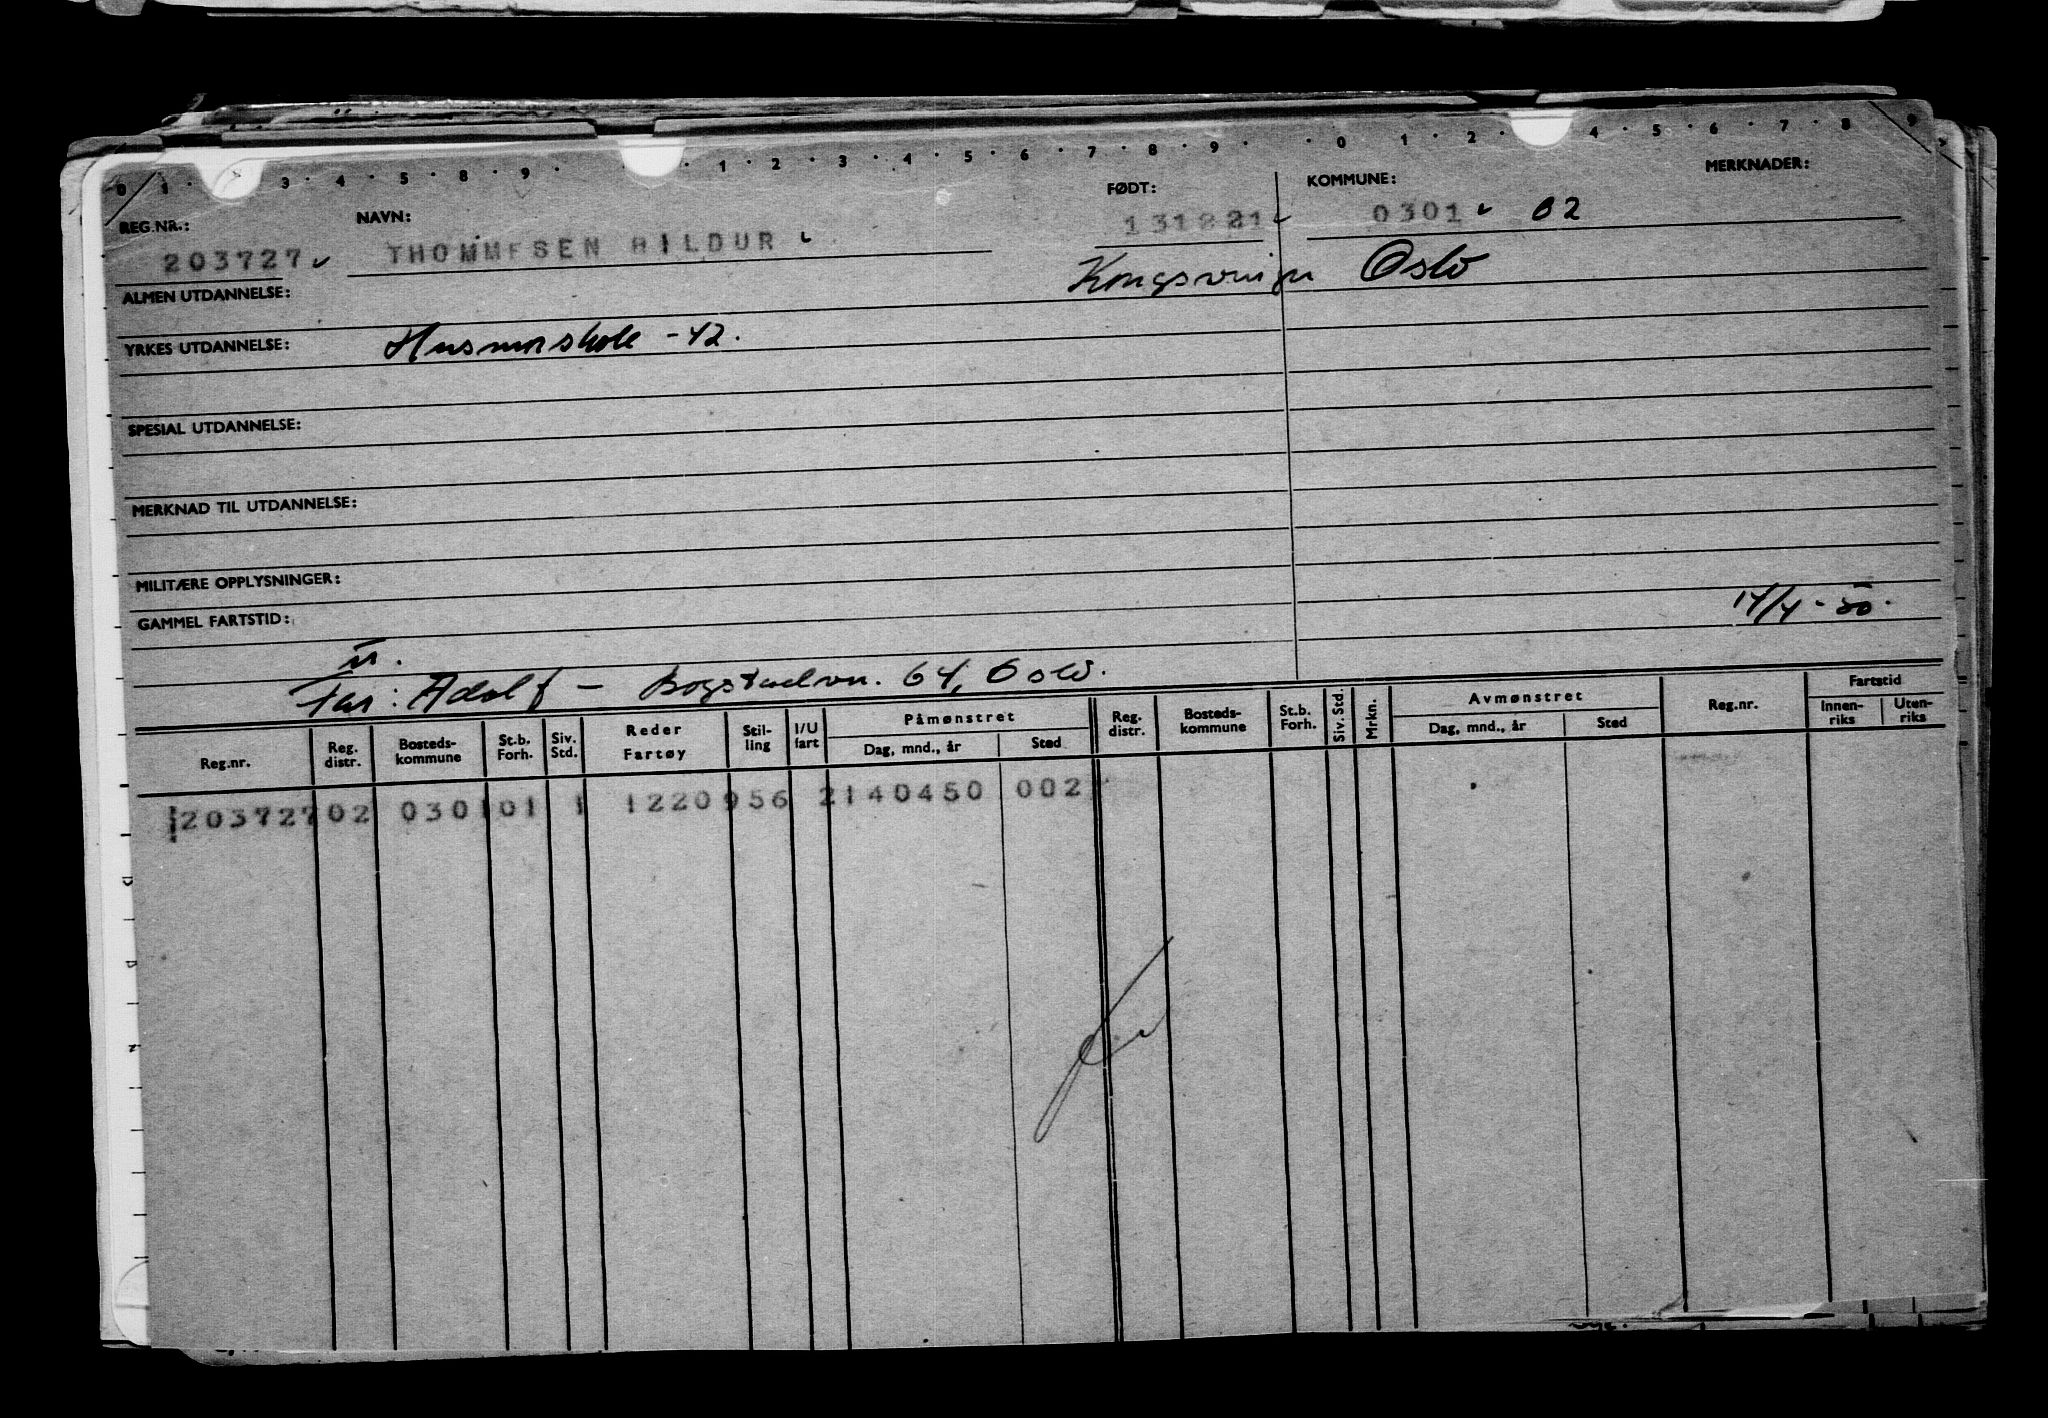 0 1 3 4 5 8 9 1 2 3 4 5 6 7 8 9 0 1 2 4 5 6 7 8 9
REG.NR.: NAVN: FØDT: KOMMUNE: MERKNADER:
203727 THOMMESEN HILDUR 131221 0301 02
Kongsvinger Oslo
ALMEN UTDANNELSE:
YRKES UTDANNELSE: Husmorskole -42.
SPESIAL UTDANNELSE:
MERKNAD TIL UTDANNELSE:
MILITÆRE OPPLYSNINGER:
GAMMEL FARTSTID: 14/4-50.
Far: Adolf - Bogstadvn. 64, Oslo.
Reg.nr. Reg. distr. Bosteds-kommune St.b. Forh. Siv. Std. Reder Fartøy Stil-ling I/U fart Påmønstret Dag, mnd., år Sted Reg. distr. Bosteds-kommune St.b. Forh. Siv. Std. Mrkn. Avmønstret Dag, mnd., år Sted Reg.nr. Fartstid Innen-riks Uten-riks
203727 02 0301 01 1 1220956 2140450 002